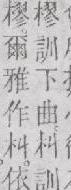 樛訓下曲朻訓
樛爾雅作朻依